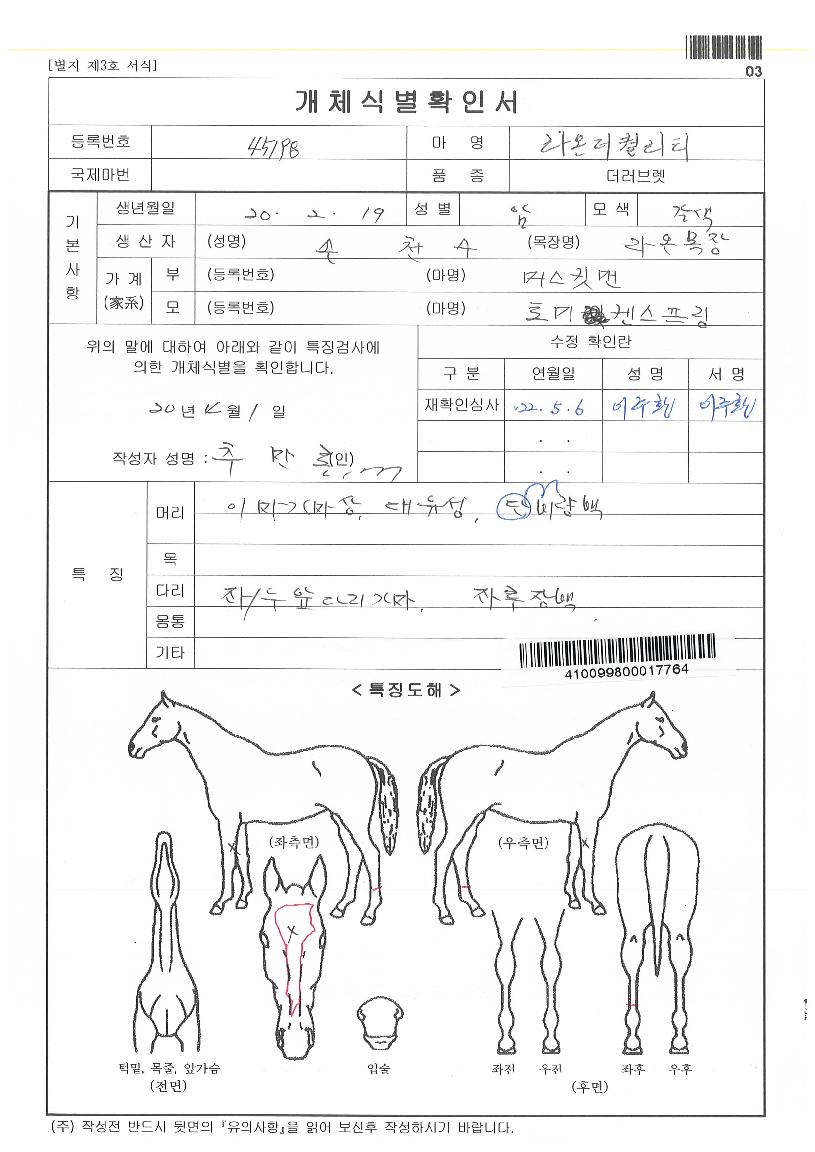 [별지 제3호 서식]
03
개체식별확인서
등록번호 45198 마 명 라온더퀄리티
국제마번 품 종 더러브렛
기본사항
생년월일 20. 2. 19 성 별 암 모 색 갈색
생 산 자 (성명) 손 천 수 (목장명) 라온목장
가 계 (家系) 부 (등록번호) (마명) 머스킷맨
모 (등록번호) (마명) 토미 켄스프링
위의 말에 대하여 아래와 같이 특징검사에
의한 개체식별을 확인합니다.
20년 월 1 일
작성자 성명 : 추 만 (인)
수정 확인란
구 분 연월일 성 명 서 명
재확인심사 '22. 5. 6
. .
. .
특 징
머리 이마가마상, 대유성, 단비량백
목
다리 좌/우앞다리가마, 좌후장백
몸통
기타
410099800017764
< 특징도해 >
(좌측면)
(우측면)
턱밑, 목줄, 앞가슴
(전면)
입술
좌전 우전 좌후 우후
(후면)
(주) 작성전 반드시 뒷면의 『유의사항』을 읽어 보신후 작성하시기 바랍니다.